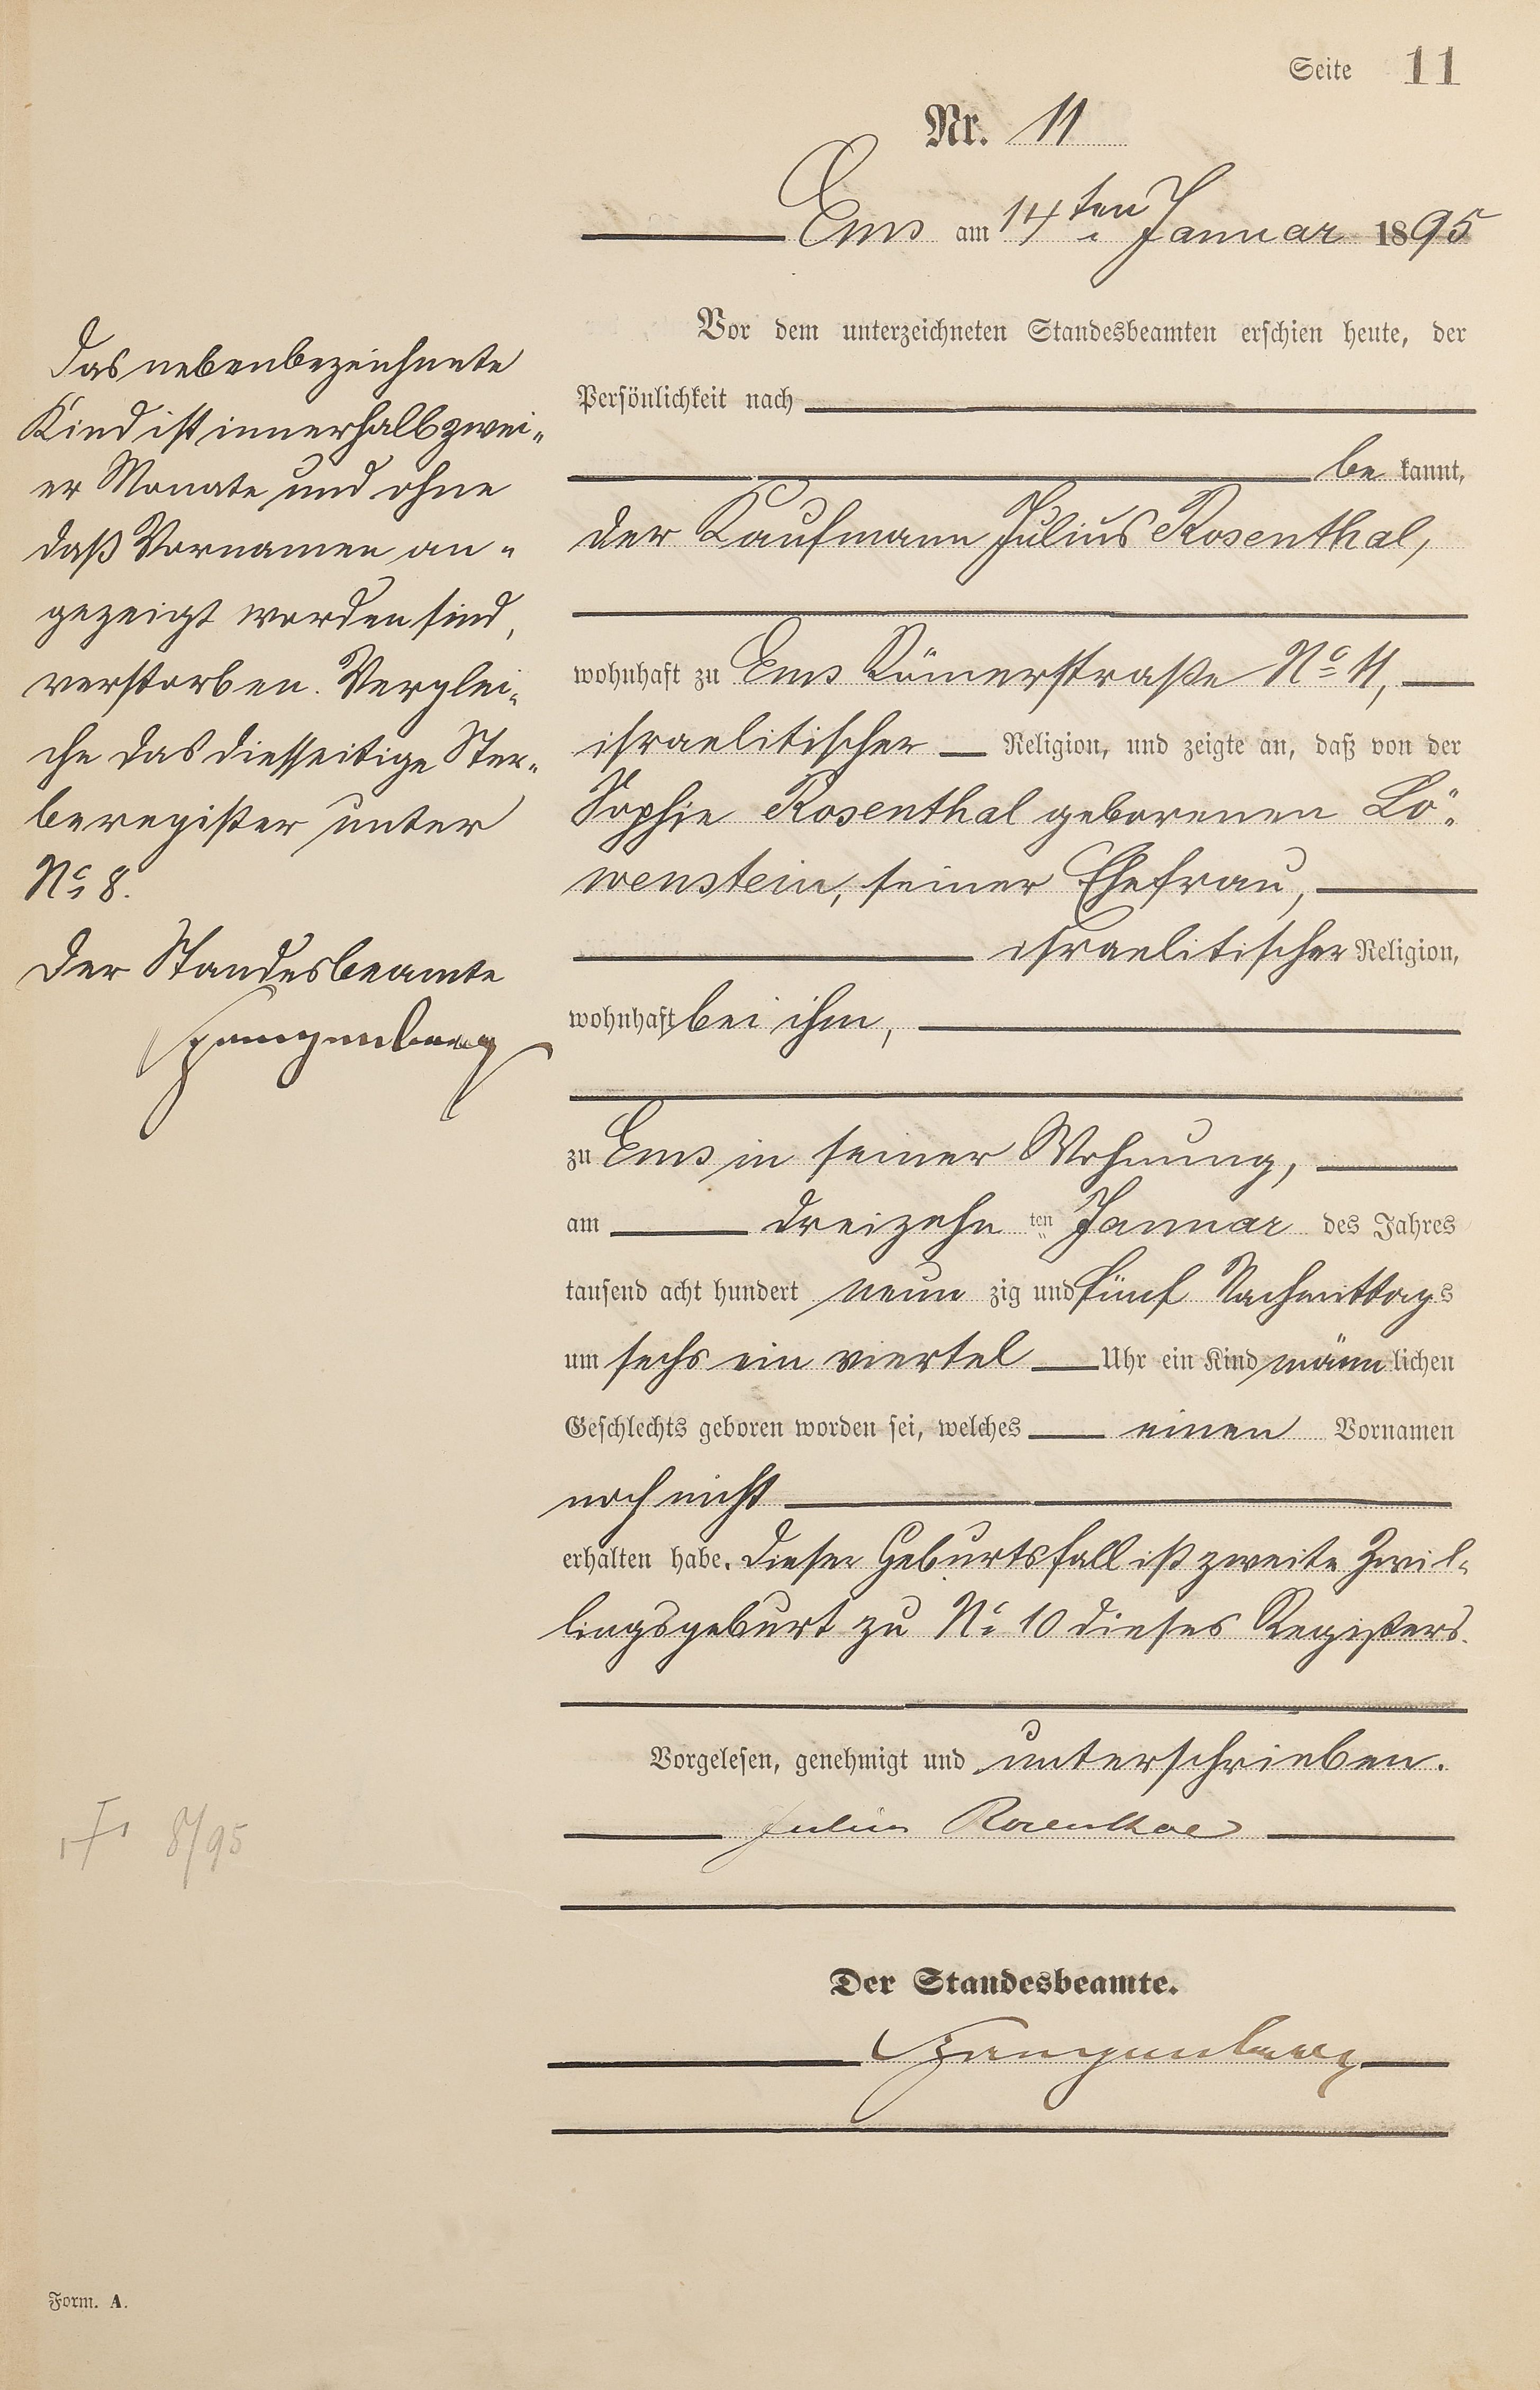 Seite 11
Nr. 11
Ems am 14ten Januar 1895
Vor dem unterzeichneten Standesbeamten erschien heute, der
Persönlichkeit nach
be kannt,
der Kaufmann Julius Rosenthal,
wohnhaft zu Ems Römerstraße No 11,
israelitischer Religion, und zeigte an, daß von der
Sophie Rosenthal geborenen Lö-
wenstein, seiner Ehefrau,
israelitischer Religion,
wohnhaft bei ihm,
zu Ems in seiner Wohnung,
am dreizehn ten Januar des Jahres
tausend acht hundert neun zig und fünf Nachmittags
um sechs ein viertel Uhr ein Kind männlichen
Geschlechts geboren worden sei, welches einen Vornamen
noch nicht
erhalten habe. Dieser Geburtsfall ist zweite Zwil-
lingsgeburt zu No 10 dieses Registers.
Vorgelesen, genehmigt und unterschrieben.
Julius Rosenthal
Der Standesbeamte.
Spangenberg
Das nebenbezeichnete
Kind ist innerhalb zwei-
er Monate und ohne
daß Vornamen an-
gezeigt worden sind,
verstorben. Verglei-
che das diesseitige Ster-
beregister unter
No 8.
Der Standesbeamte
Spangenberg
8/95
Form. A.